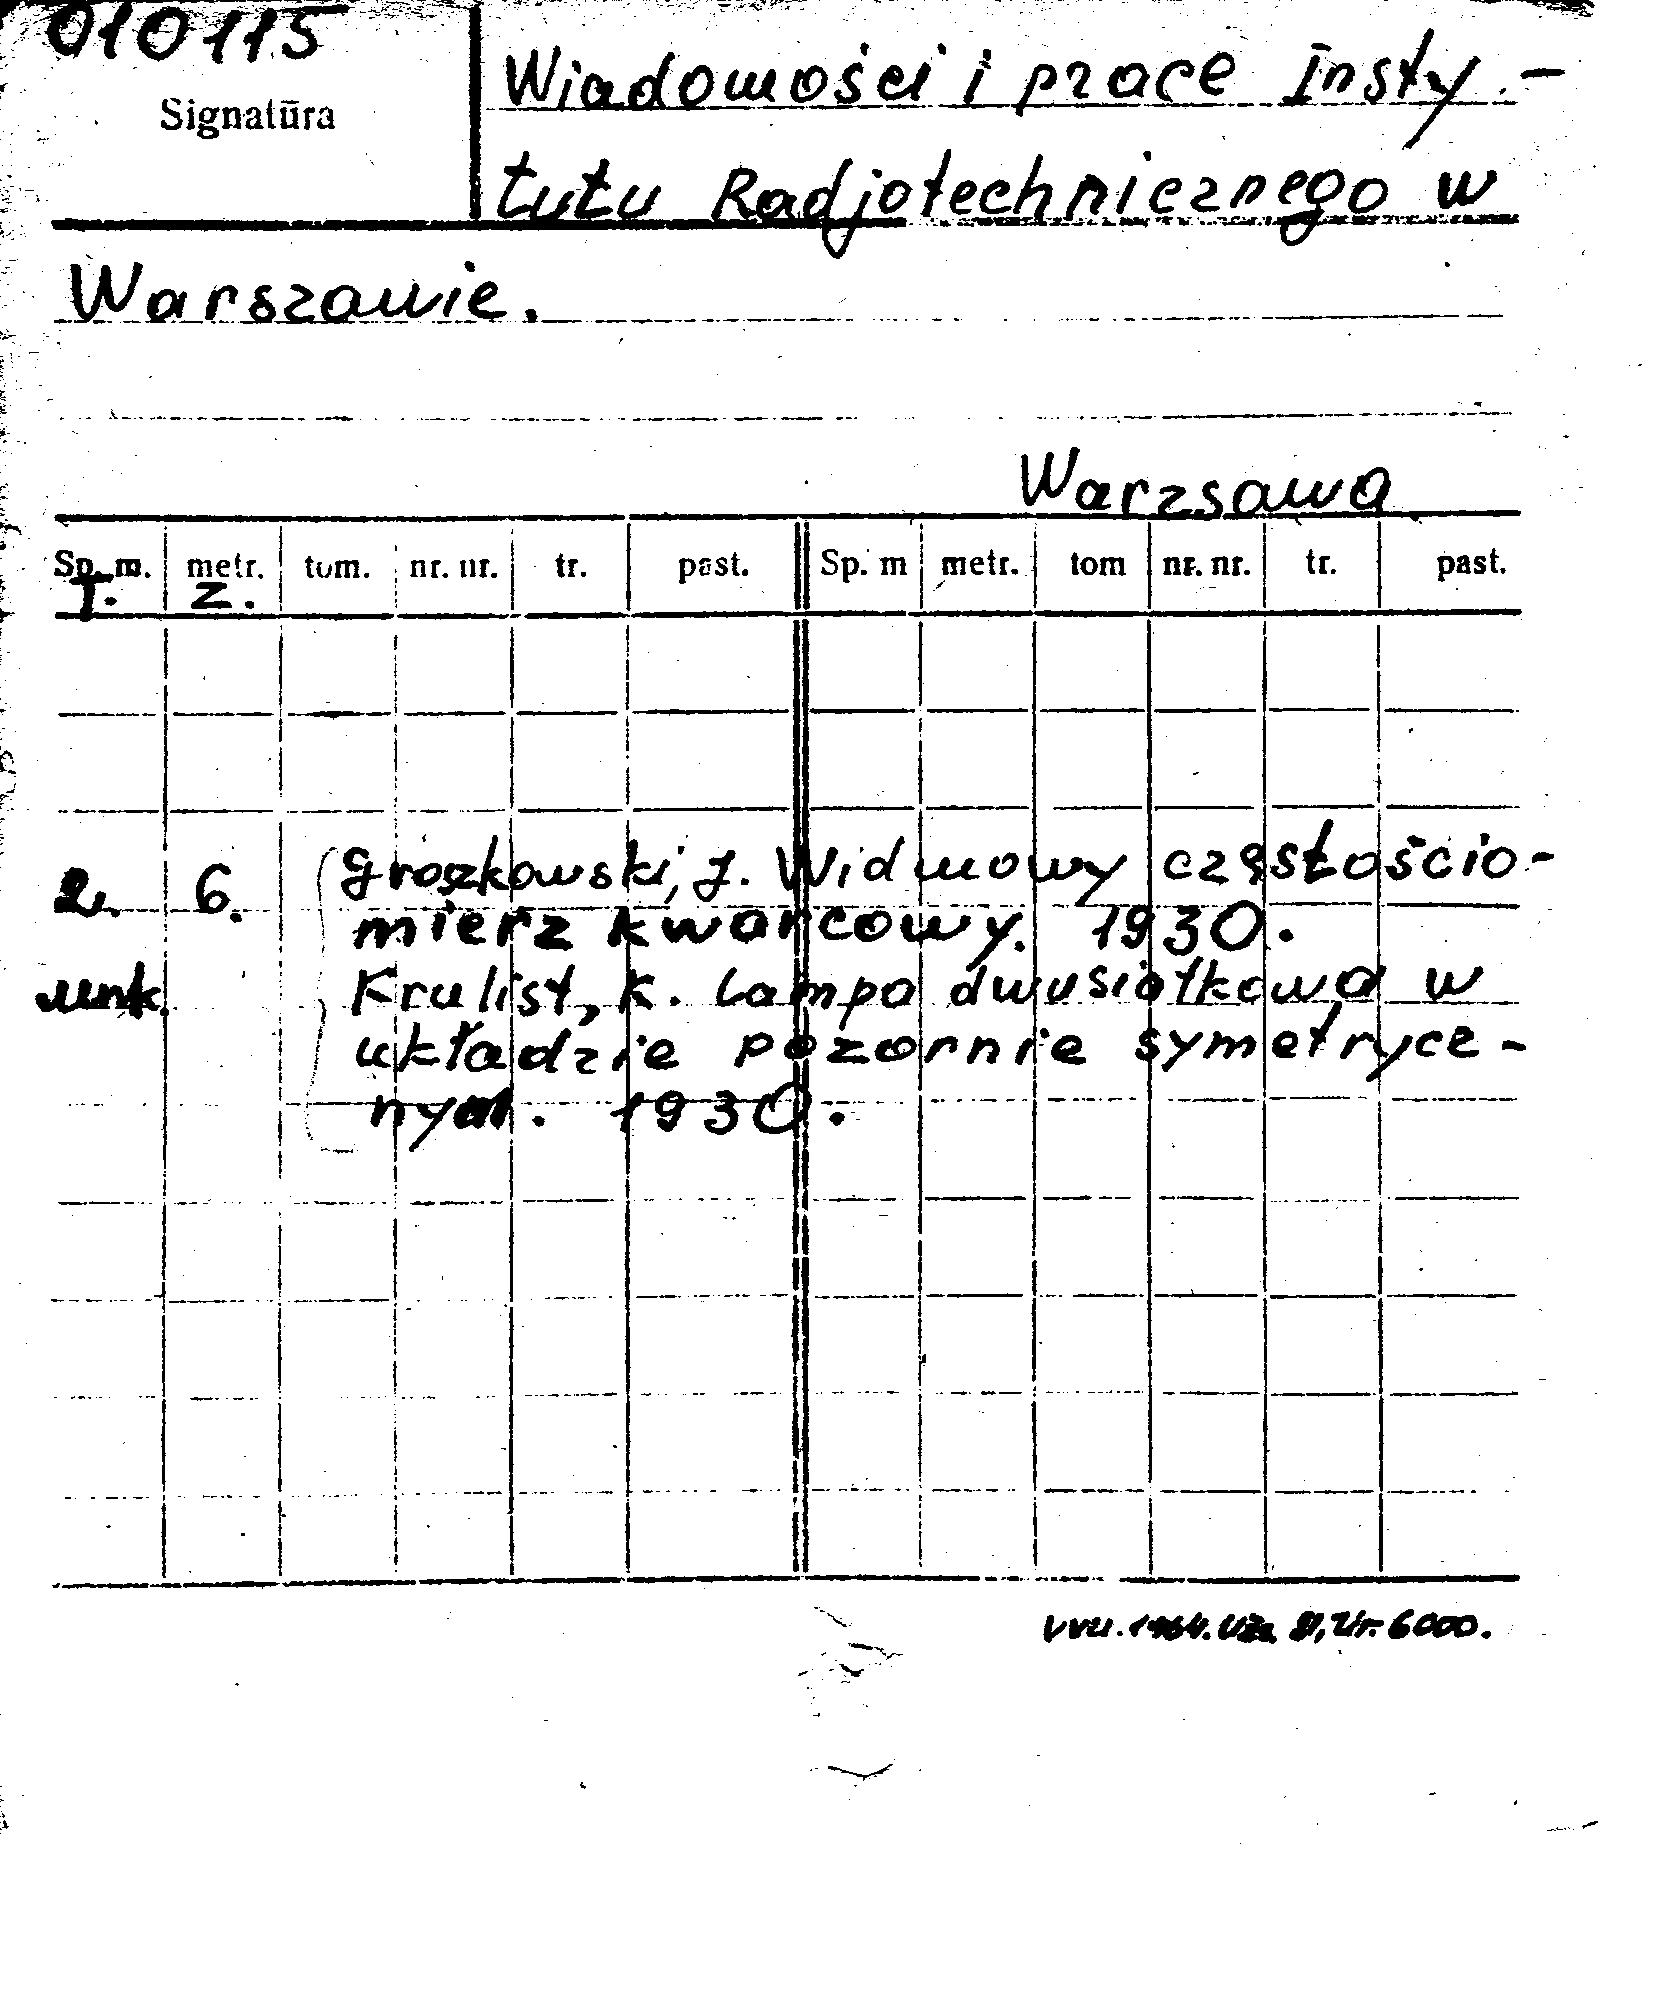 010115
Signatūra
Wiadomości i prace Insty-
tutu Radjotechnicznego w
Warszawie.
Warzsawa
Sp. m. metr. tom. nr. nr. tr. past. Sp. m metr. tom nr. nr. tr. past.
T. Z.
2. 6. Groszkowski, J. Widmowy częstościo-
mierz kwarcowy. 1930.
Krulisz, K. Lampa dwusiatkowa w
układzie pozornie symetrycz-
nym. 1930.
VVU. 1964. Užs. 81, Tir. 6000.